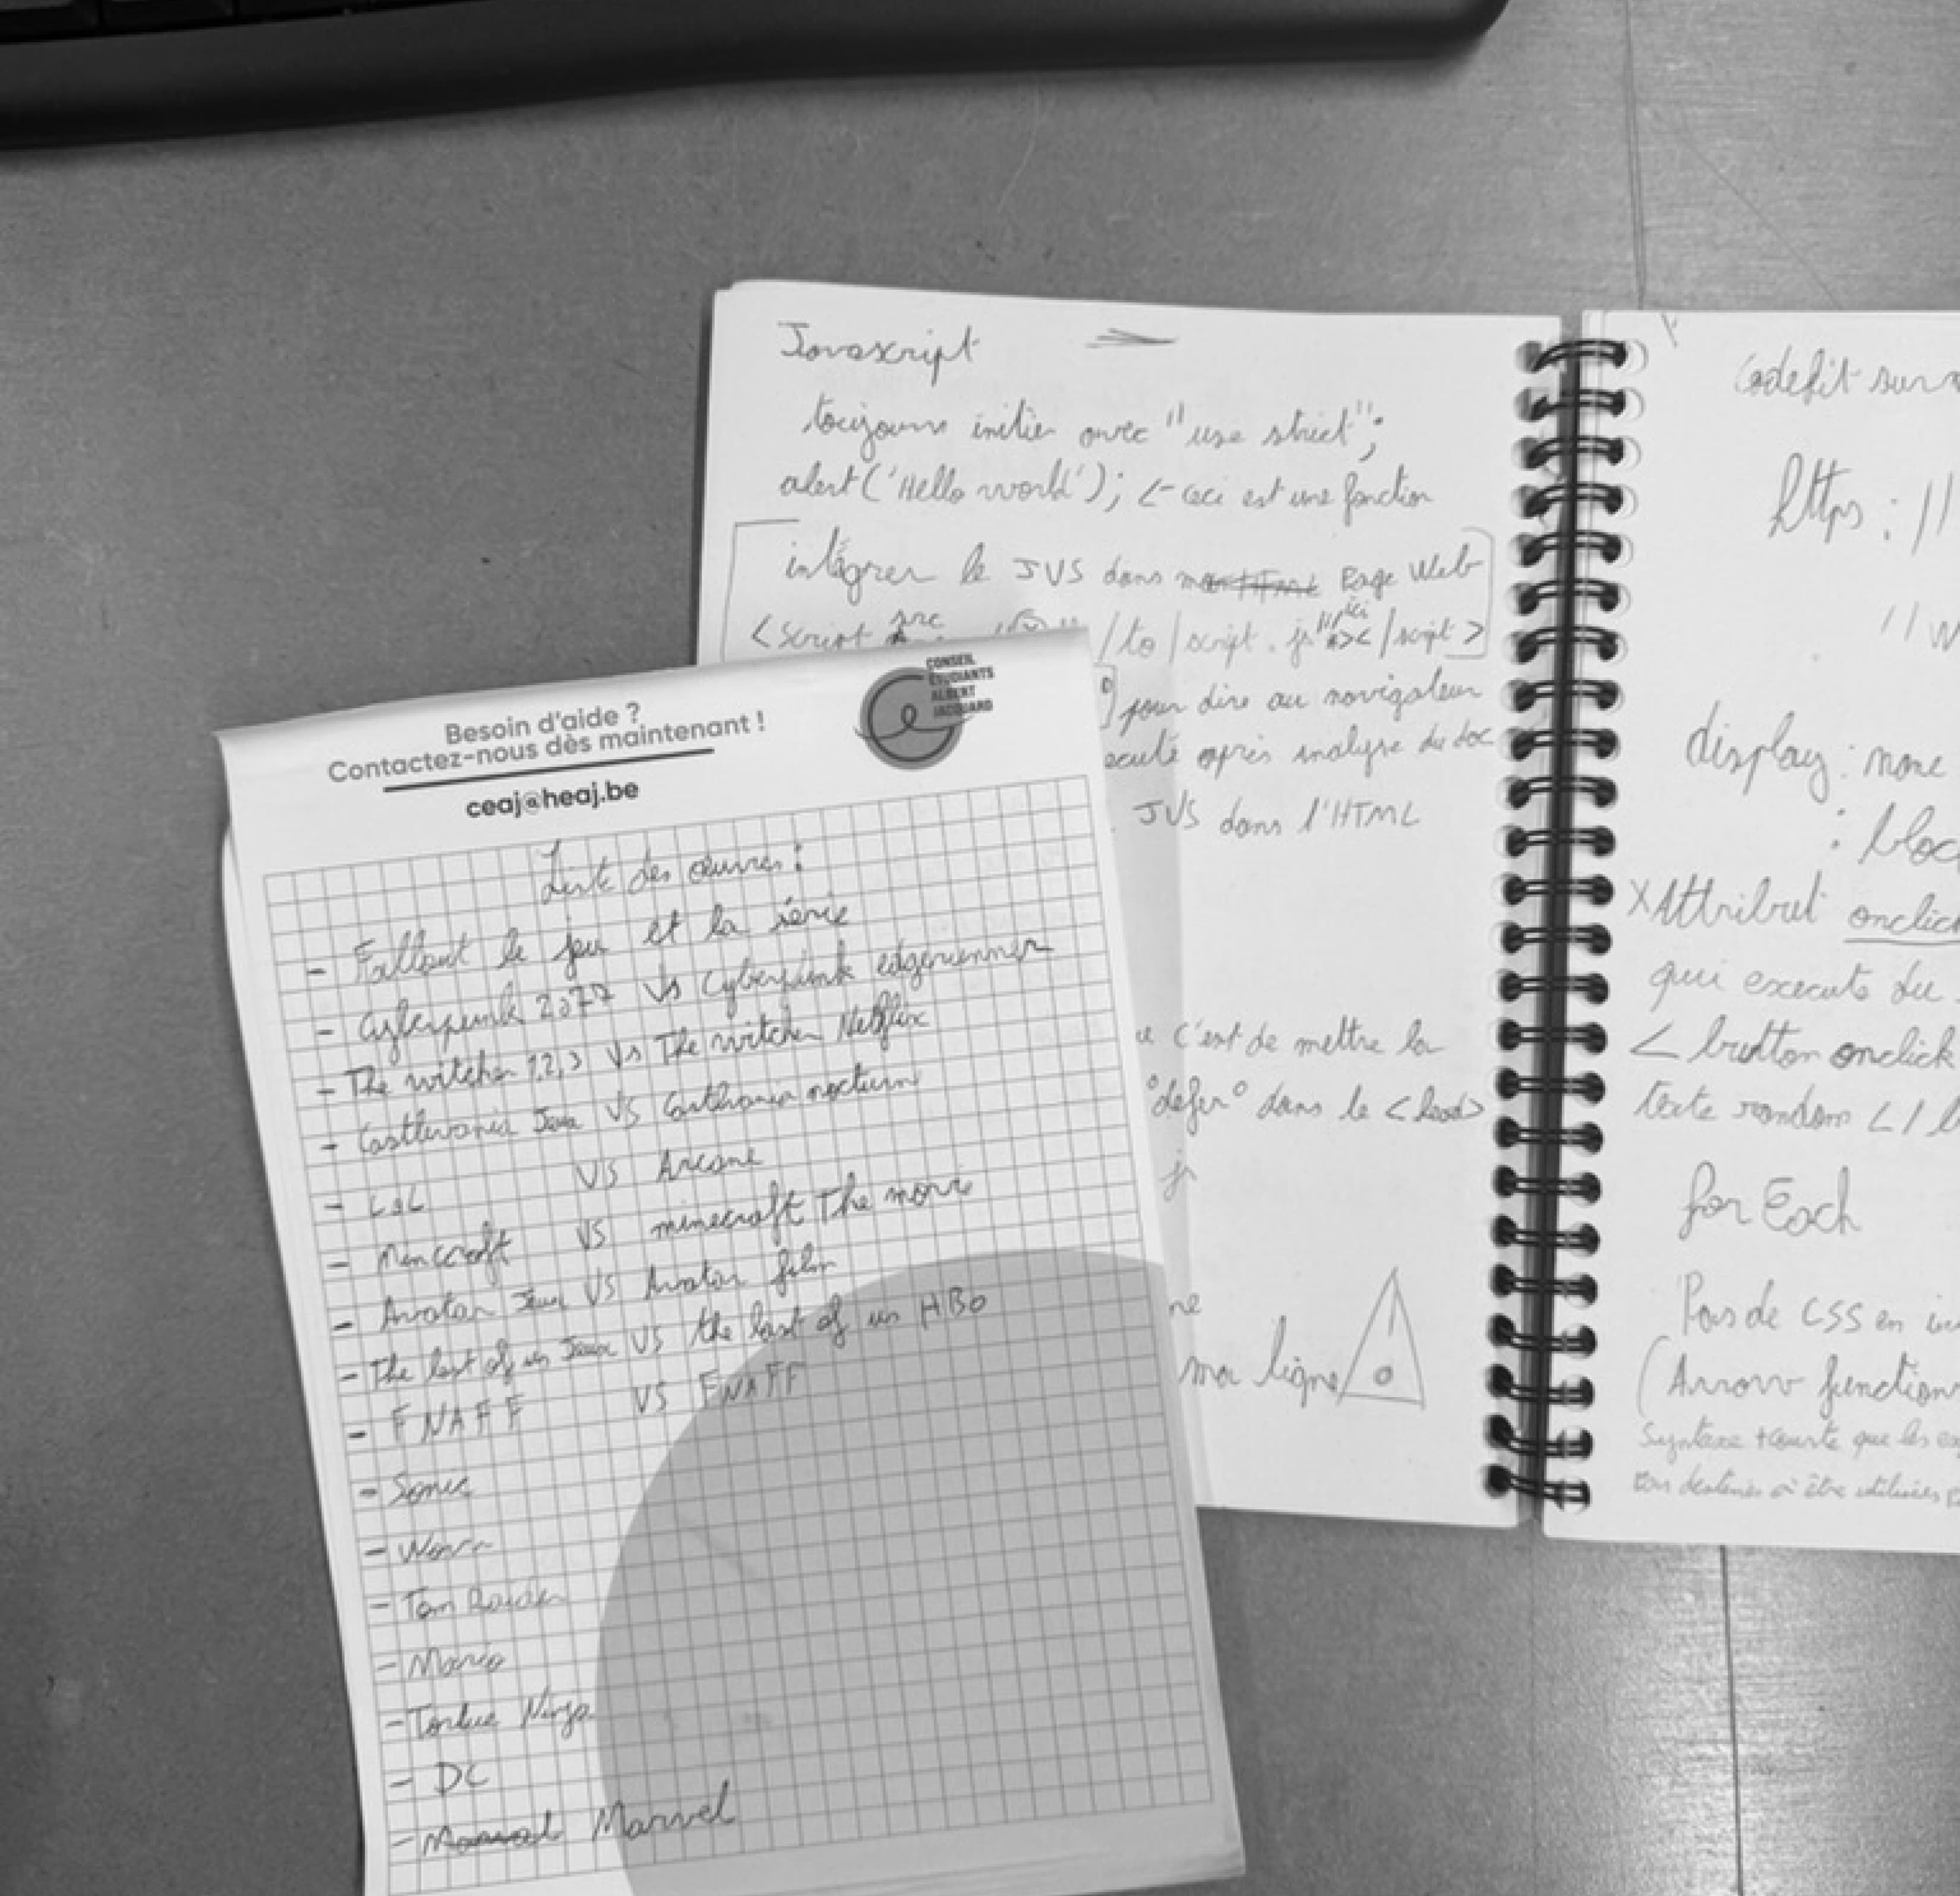 Javascript
toujours initier avec "use strict";
alert('Hello world'); <- ceci est une fonction
intégrer le JVS dans Page Web
<script src /to/script.js"></script>
ici
pour dire au navigateur
après analyse du doc
JVS dans l'HTML
c'est de mettre la
"defer" dans le <head>
js
ne
ma ligne
Besoin d'aide ?
Contactez-nous dès maintenant !
ceaj@heaj.be
CONSEIL
ÉTUDIANTS
ALBERT
JACQUARD
Liste des œuvres :
- Fallout le jeu et la série
- Cyberpunk 2077 VS Cyberpunk edgerunner
- The witcher 1,2,3 VS The witcher Netflix
- Castlevania Jeux VS Castlevania nocturne
- LOL VS Arcane
- Mincraft VS minecraft The movie
- Avatar Jeux VS Avatar film
- The last of us Jeux VS the last of us HBO
- FNAFF VS FNAFF
- Sonic
- Tom Raider
- Mario
- Tortue Ninja
- DC
- Marvel
Codepit sur
https://
//w
display: none
: bloc
X Attribut onclick
qui execute du
<button onclick
texte random </
for Each
Pas de CSS en
(Arrow function
Syntaxe + courte que les
destinés à être utilisées